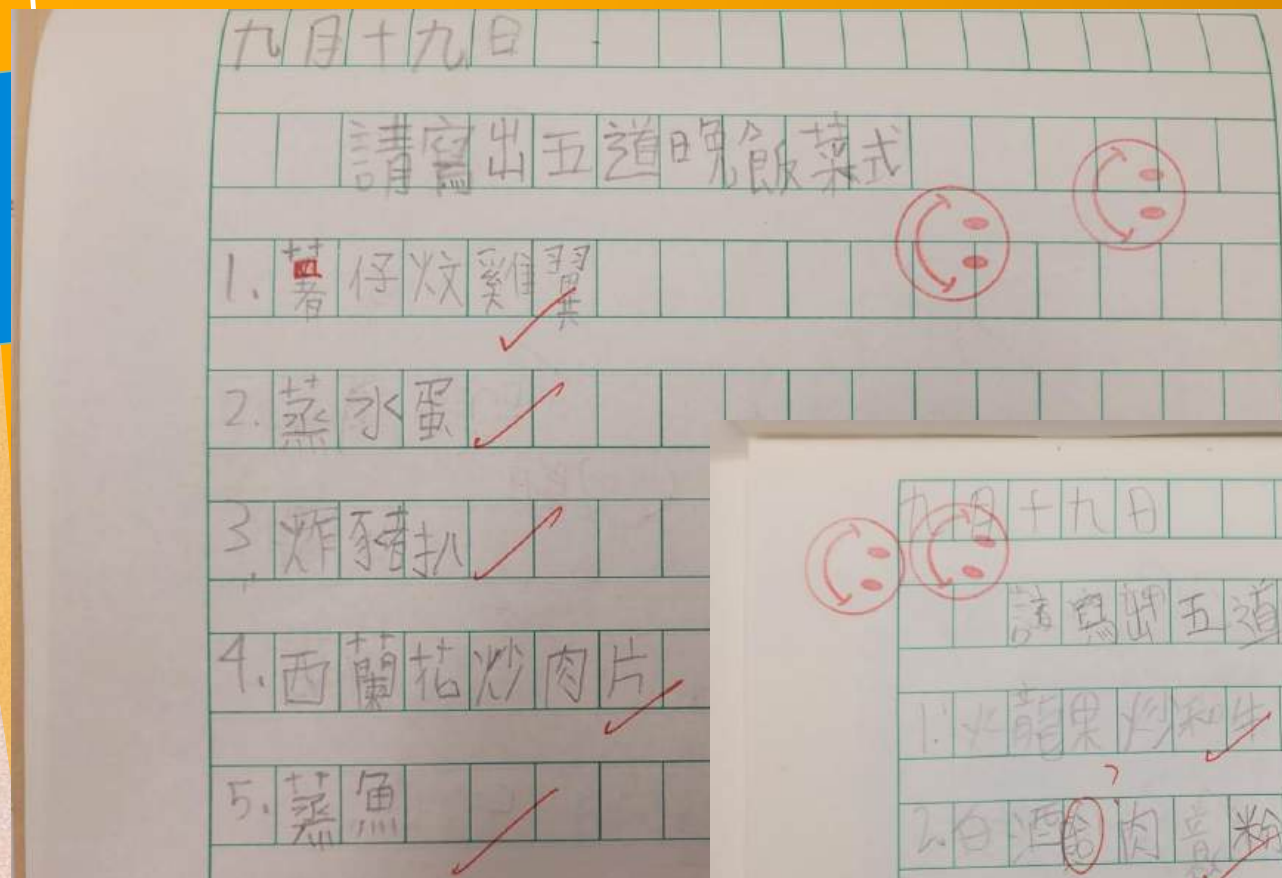 九月十九日
請寫出五道晚飯菜式
1. 薯仔炆雞翼
2. 蒸水蛋
3. 炸豬扒
4. 西蘭花炒肉片
5. 蒸魚
九月十九日
請寫出五道
1. 火龍果炒和牛
2. 白酒 肉意粉